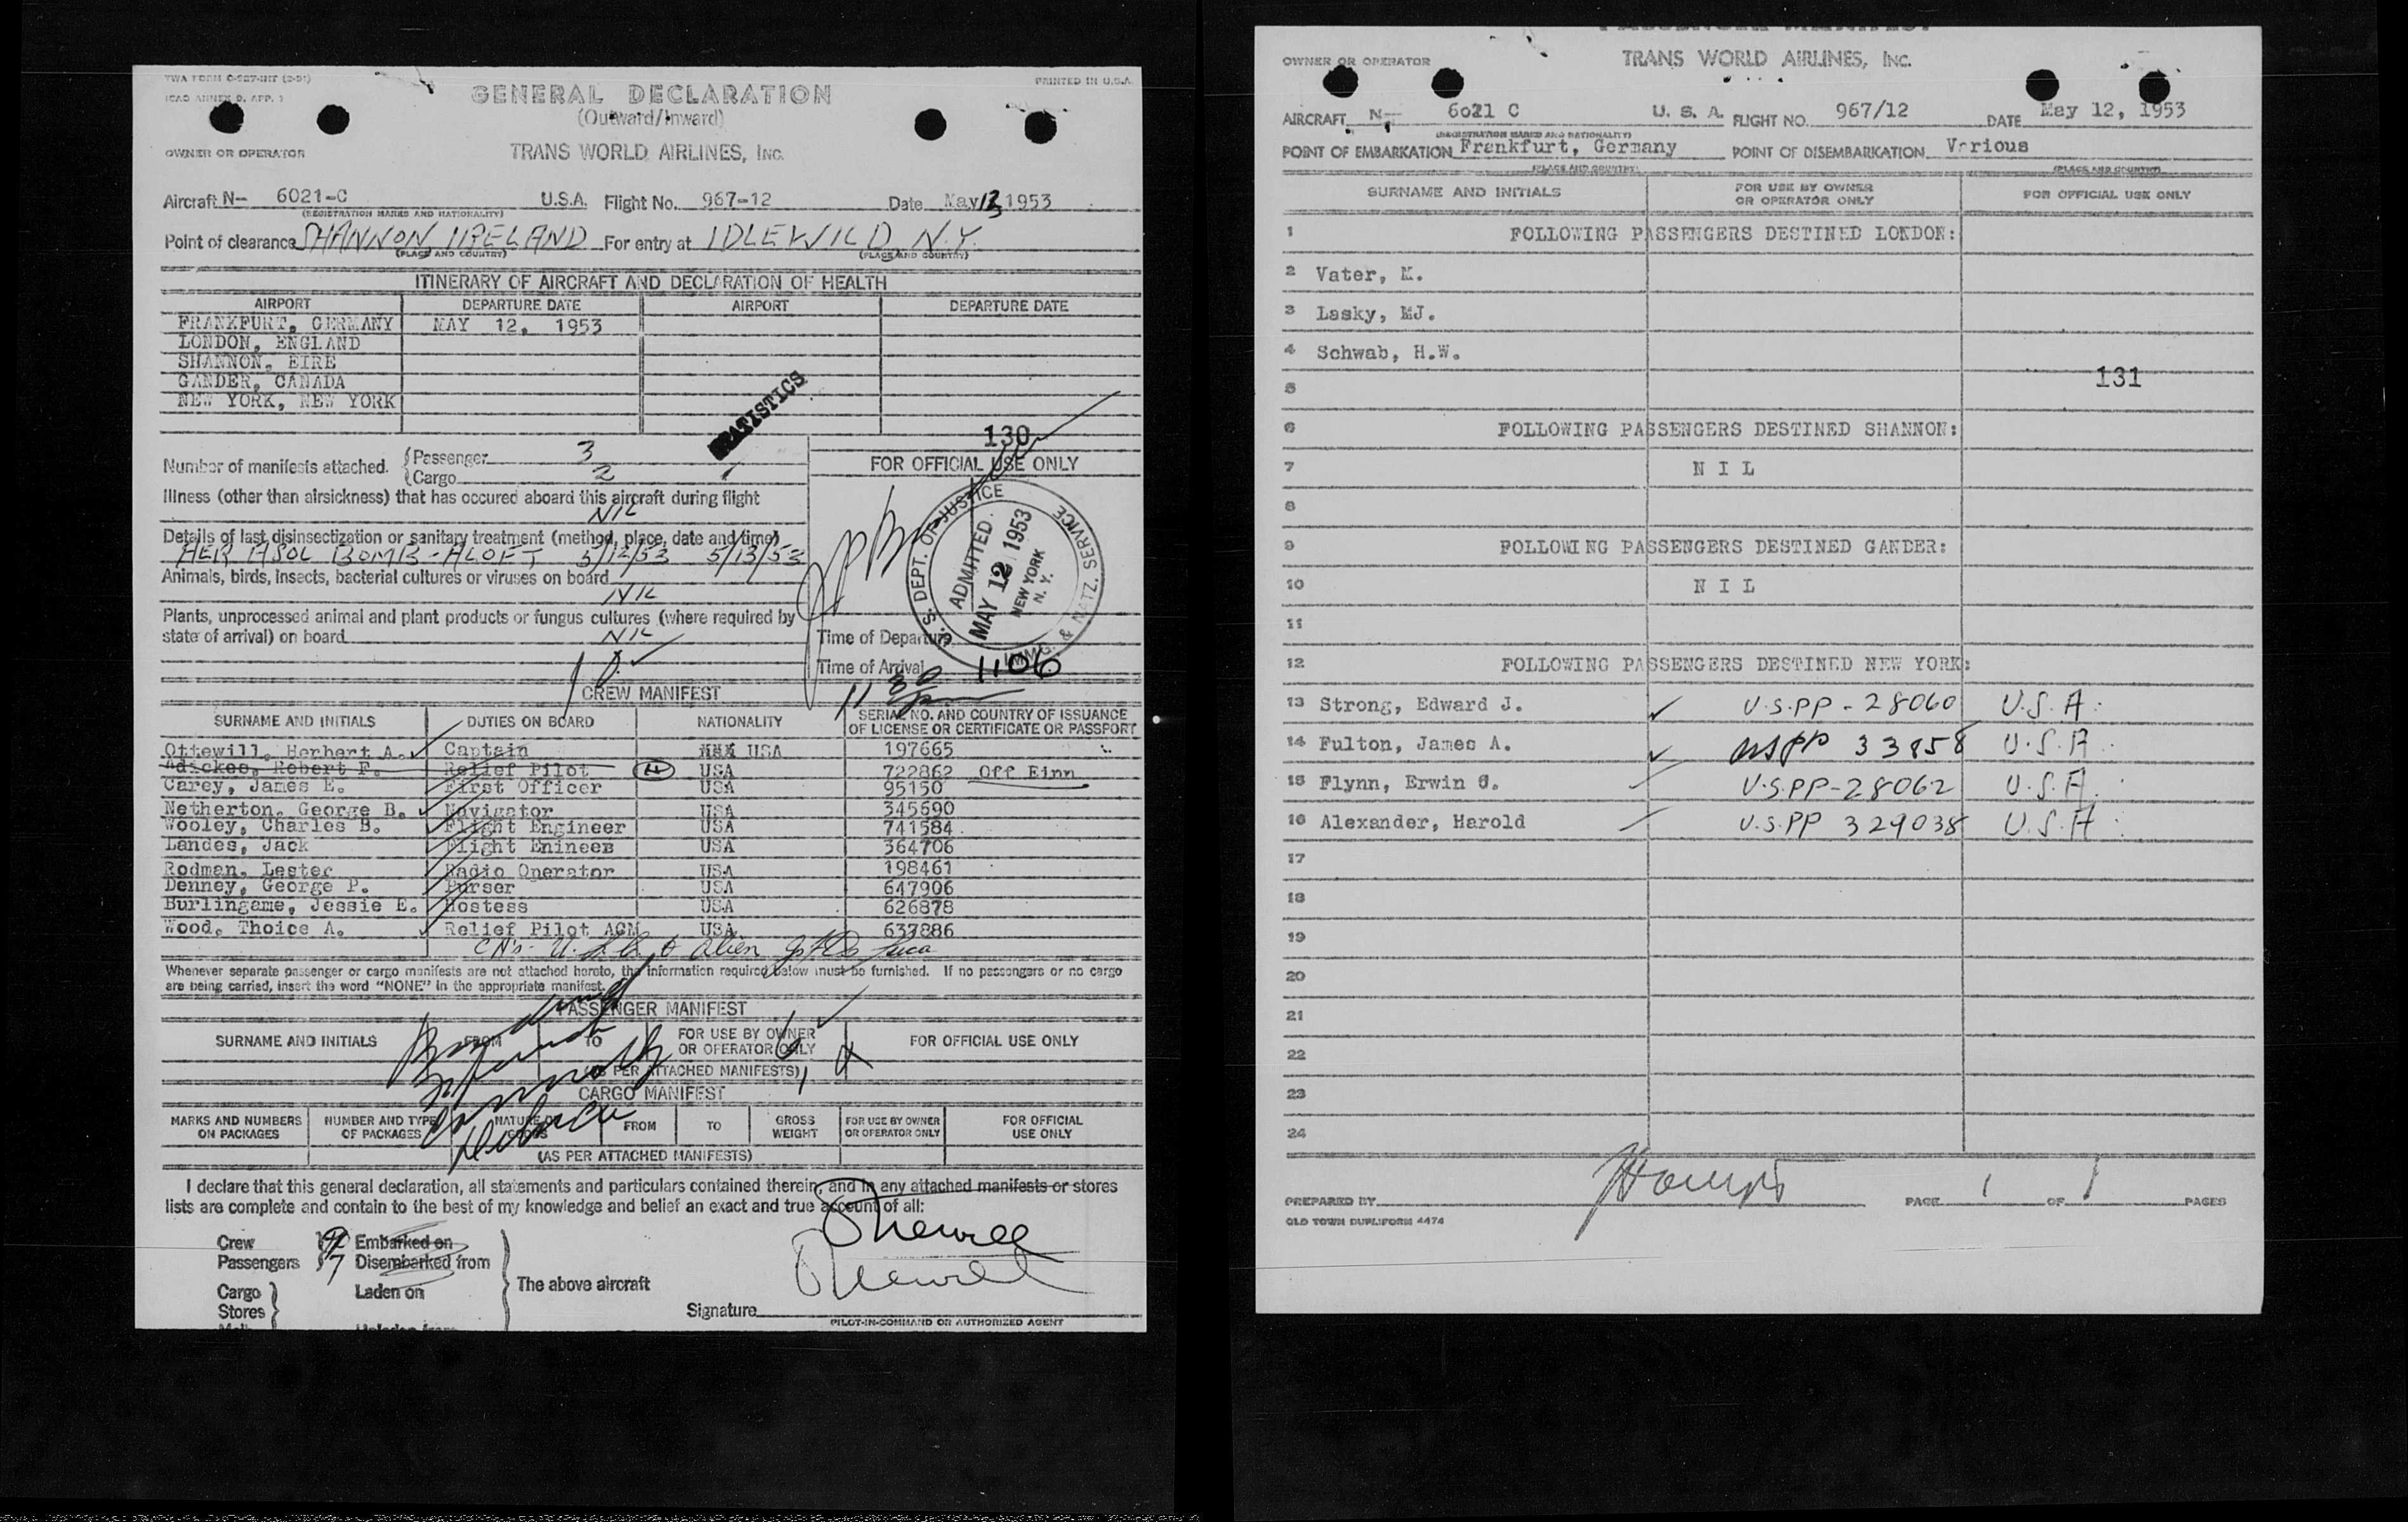 TWA FORM C-927-INT (2-51)
PRINTED IN U.S.A.
ICAO ANNEX 9, APP. 1
GENERAL DECLARATION
(Outward/Inward)
OWNER OR OPERATOR
TRANS WORLD AIRLINES, INC.
Aircraft N- 6021-C U.S.A. Flight No. 967-12 Date May 13 1953
(REGISTRATION MARKS AND NATIONALITY)
Point of clearance SHANNON, IRELAND For entry at IDLEWILD, N.Y.
(PLACE AND COUNTRY) (PLACE AND COUNTRY)
ITINERARY OF AIRCRAFT AND DECLARATION OF HEALTH
AIRPORT DEPARTURE DATE AIRPORT DEPARTURE DATE
FRANKFURT, GERMANY MAY 12, 1953
LONDON, ENGLAND
SHANNON, EIRE
GANDER, CANADA
NEW YORK, NEW YORK
STATISTICS
130
Number of manifests attached. Passenger 3
Cargo 2
FOR OFFICIAL USE ONLY
Illness (other than airsickness) that has occured aboard this aircraft during flight
NIL
Details of last disinsectization or sanitary treatment (method, place, date and time)
AER ASOL BOMB - ALOFT 5/12/53 5/13/53
Animals, birds, insects, bacterial cultures or viruses on board
NIL
Plants, unprocessed animal and plant products or fungus cultures (where required by
state of arrival) on board NIL
U.S. DEPT. OF JUSTICE
IMMG. & NATZ. SERVICE
ADMITTED
MAY 12 1953
NEW YORK
N. Y.
Time of Departure
Time of Arrival 1106
CREW MANIFEST
SURNAME AND INITIALS DUTIES ON BOARD NATIONALITY SERIAL NO. AND COUNTRY OF ISSUANCE
OF LICENSE OR CERTIFICATE OR PASSPORT
Ottewill, Herbert A. Captain USA 197665
Adickes, Robert F. Relief Pilot USA 722862 Off Einn
Carey, James E. First Officer USA 95150
Netherton, George B. Navigator USA 345690
Wooley, Charles B. Flight Engineer USA 741584
Landes, Jack Flight Enineer USA 364706
Rodman, Lester Radio Operator USA 198461
Denney, George P. Purser USA 647906
Burlingame, Jessie E. Hostess USA 626878
Wood, Thoice A. Relief Pilot ACM USA 637886
Whenever separate passenger or cargo manifests are not attached hereto, the information required below must be furnished. If no passengers or no cargo
are being carried, insert the word "NONE" in the appropriate manifest.
PASSENGER MANIFEST
SURNAME AND INITIALS FROM TO FOR USE BY OWNER
OR OPERATOR ONLY FOR OFFICIAL USE ONLY
(AS PER ATTACHED MANIFESTS)
CARGO MANIFEST
MARKS AND NUMBERS
ON PACKAGES NUMBER AND TYPE
OF PACKAGES NATURE OF
GOODS FROM TO GROSS
WEIGHT FOR USE BY OWNER
OR OPERATOR ONLY FOR OFFICIAL
USE ONLY
(AS PER ATTACHED MANIFESTS)
I declare that this general declaration, all statements and particulars contained therein, and in any attached manifests or stores
lists are complete and contain to the best of my knowledge and belief an exact and true account of all:
Crew 9 Embarked on
Passengers 7 Disembarked from
Cargo Laden on
Stores
The above aircraft
Signature
PILOT-IN-COMMAND OR AUTHORIZED AGENT
PASSENGER MANIFEST
OWNER OR OPERATOR
TRANS WORLD AIRLINES, INC.
AIRCRAFT N- 6021 C U. S. A. FLIGHT NO. 967/12 DATE May 12, 1953
(REGISTRATION MARKS AND NATIONALITY)
POINT OF EMBARKATION Frankfurt, Germany POINT OF DISEMBARKATION Various
(PLACE AND COUNTRY) (PLACE AND COUNTRY)
SURNAME AND INITIALS FOR USE BY OWNER
OR OPERATOR ONLY FOR OFFICIAL USE ONLY
1 FOLLOWING PASSENGERS DESTINED LONDON:
2 Vater, M.
3 Lasky, MJ.
4 Schwab, H.W.
5 131
6 FOLLOWING PASSENGERS DESTINED SHANNON:
7 N I L
8
9 FOLLOWING PASSENGERS DESTINED GANDER:
10 N I L
11
12 FOLLOWING PASSENGERS DESTINED NEW YORK:
13 Strong, Edward J. U.S.PP - 28060 U.S.A.
14 Fulton, James A. USPP 33858 U.S.A.
15 Flynn, Erwin G. U.S.PP-28062 U.S.A.
16 Alexander, Harold U.S.PP 329038 U.S.A.
17
18
19
20
21
22
23
24
PREPARED BY PAGE 1 OF 1 PAGES
OLD TOWN DUPLIFORM 4474